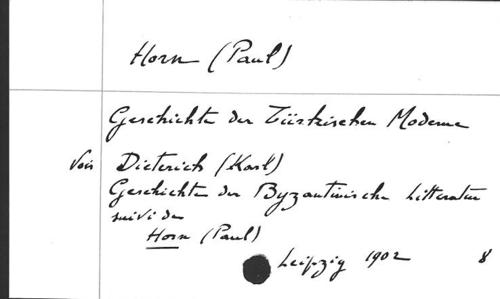 Horn (Paul)
Geschichte der Türkischen Moderne
Voir Dieterich (Karl)
Geschichte der Byzantinische Litteratur
suivi de
Horn (Paul)
Leipzig 1902 8